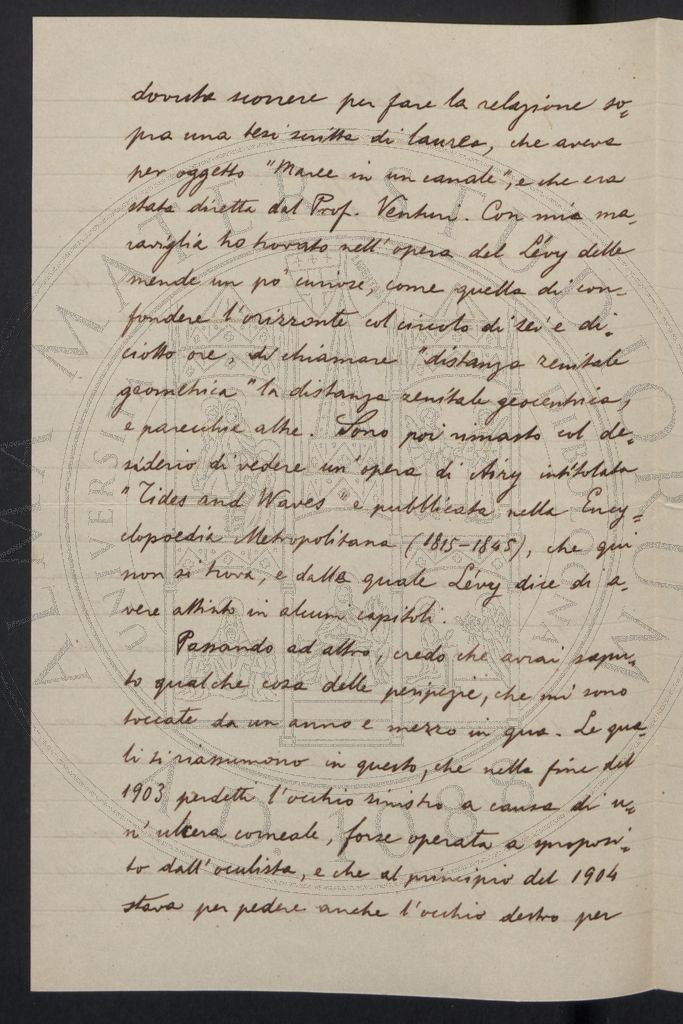 dovuta scorrere per fare la relazione so-
pra una tesi scritta di laurea, che aveva
per oggetto "Maree in un canale", e che era
stata diretta dal Prof. Venturi. Con mia ma-
raviglia ho trovato nell'opera del Lévy delle
mende un po' curiose, come quella di con-
fondere l'orizzonte col circolo di sei e di-
ciotto ore, di chiamare "distanza zenitale
geometrica" la distanza zenitale geocentrica,
e parecchie altre. Sono poi rimasto col de-
siderio di vedere un'opera di Airy intitolata
"Tides and Waves" e pubblicata nella Ency-
clopoedia Metropolitana (1815-1845), che qui
non si trova, e dalla quale Lévy dice di a-
vere attinto in alcuni capitoli.
Passando ad altro, credo che avrai sapu-
to qualche cosa delle peripezie, che mi sono
toccate da un anno e mezzo in qua. Le qua-
li si riassumono in questo, che nella fine del
1903 perdetti l'occhio sinistro a causa di u-
n'ulcera corneale, forse operata a sproposi-
to dall'oculista, e che al principio del 1904
stava per pedere anche l'occhio destro per
ALMA MATER STUDIORUM
A.D. 1088